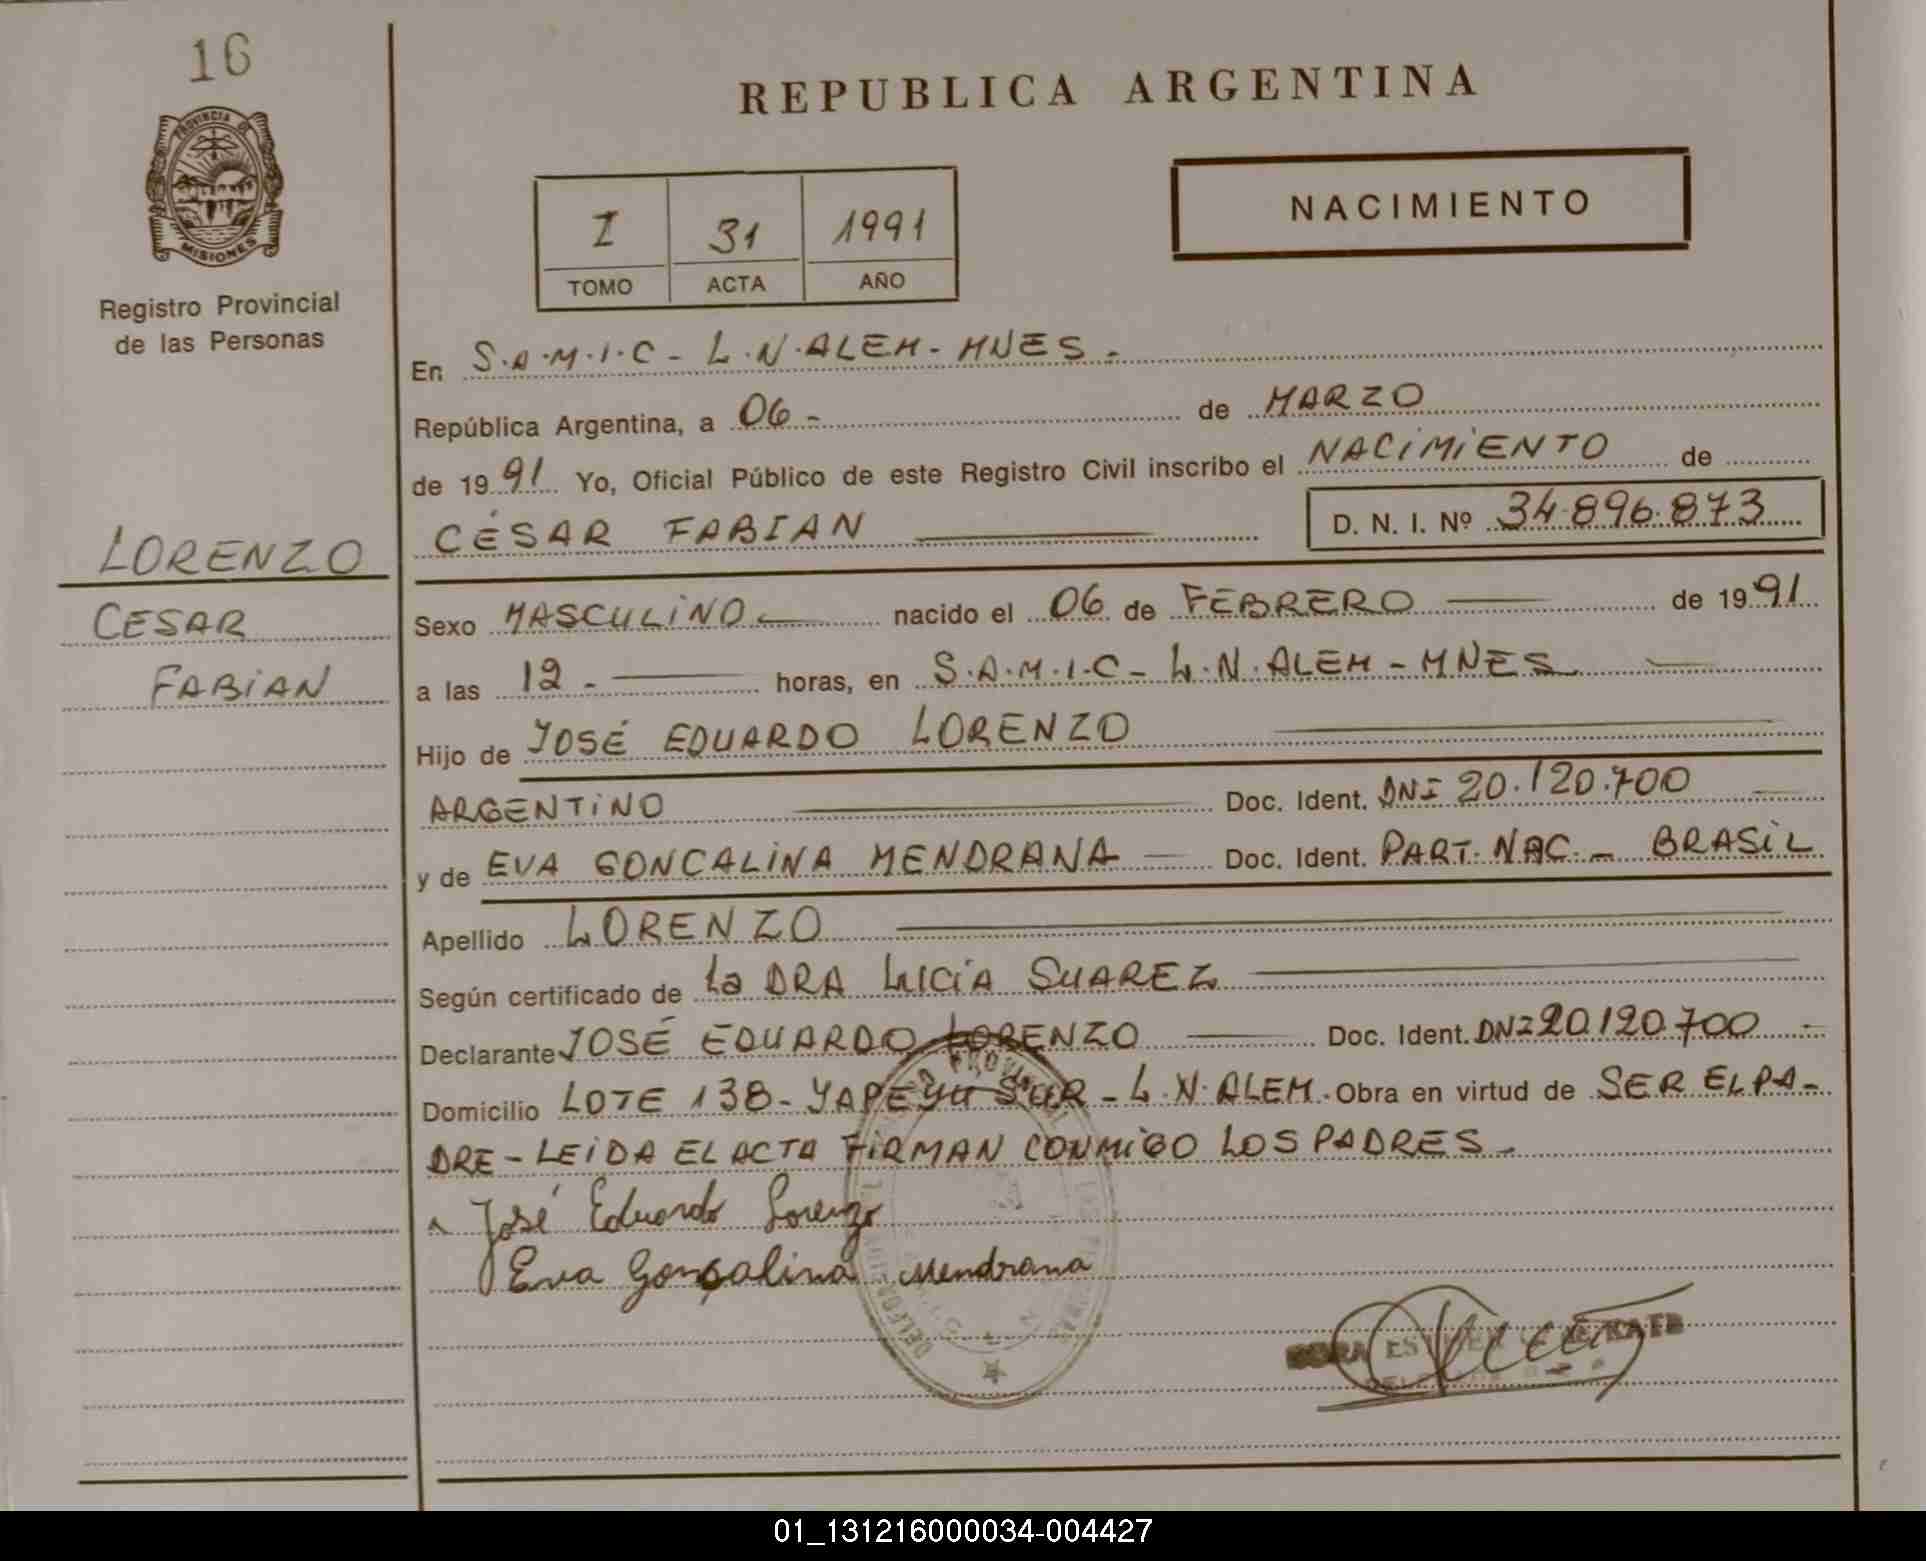 16
PROVINCIA DE
MISIONES
Registro Provincial
de las Personas
LORENZO
CESAR
FABIAN
REPUBLICA ARGENTINA
NACIMIENTO
I 31 1991
TOMO ACTA AÑO
En S.A.M.I.C - L.N.ALEM - MNES -
República Argentina, a 06 - de MARZO
de 1991 Yo, Oficial Público de este Registro Civil inscribo el NACIMIENTO de
CÉSAR FABIAN D. N. I. Nº 34.896.873
Sexo MASCULINO nacido el 06 de FEBRERO de 1991
a las 12 - horas, en S.A.M.I.C - L.N.ALEM - MNES
Hijo de JOSÉ EDUARDO LORENZO
ARGENTINO Doc. Ident. DNI 20.120.700
y de EVA GONCALINA MENDRANA Doc. Ident. PART. NAC. - BRASIL
Apellido LORENZO
Según certificado de La DRA LUCIA SUAREZ
Declarante JOSÉ EDUARDO LORENZO Doc. Ident. DNI 20.120.700
Domicilio LOTE 138 - YAPEYU SUR - L.N.ALEM. Obra en virtud de SER EL PA-
DRE - LEIDA EL ACTA FIRMAN CONMIGO LOS PADRES -
José Eduardo Lorenzo
Eva Gonçalina Mendrana
01_131216000034-004427